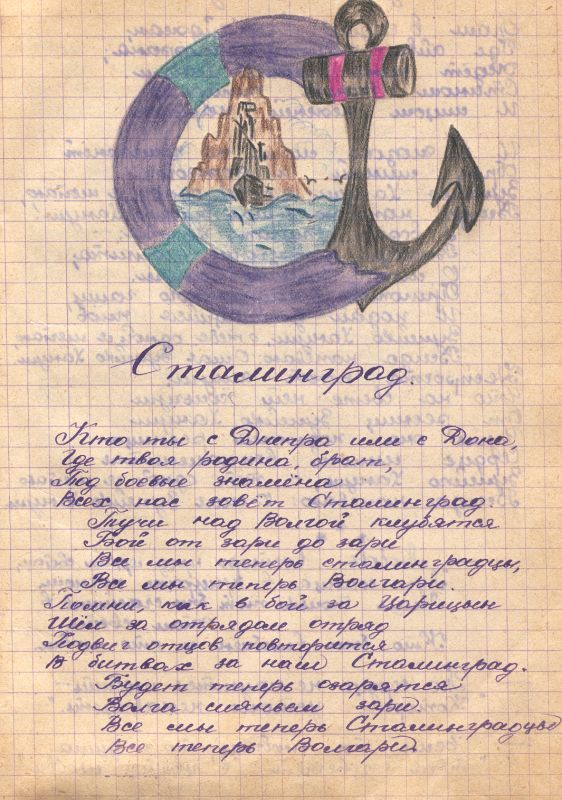 Сталинград.
Кто ты с Днепра или с Дона,
Где твоя родина, брат,
Под боевые знамёна
Всех нас зовёт Сталинград.
Тучи над Волгой клубятся
Бой от зари до зари
Все мы теперь сталинградцы,
Все мы теперь Волгари.
Помни, как в бой за Царицын
Шёл за отрядом отряд
Подвиг отцов повторится
В битвах за наш Сталинград.
Будет теперь озарятся
Волга сияньем зари
Все мы теперь Сталинградцы
Все теперь Волгари